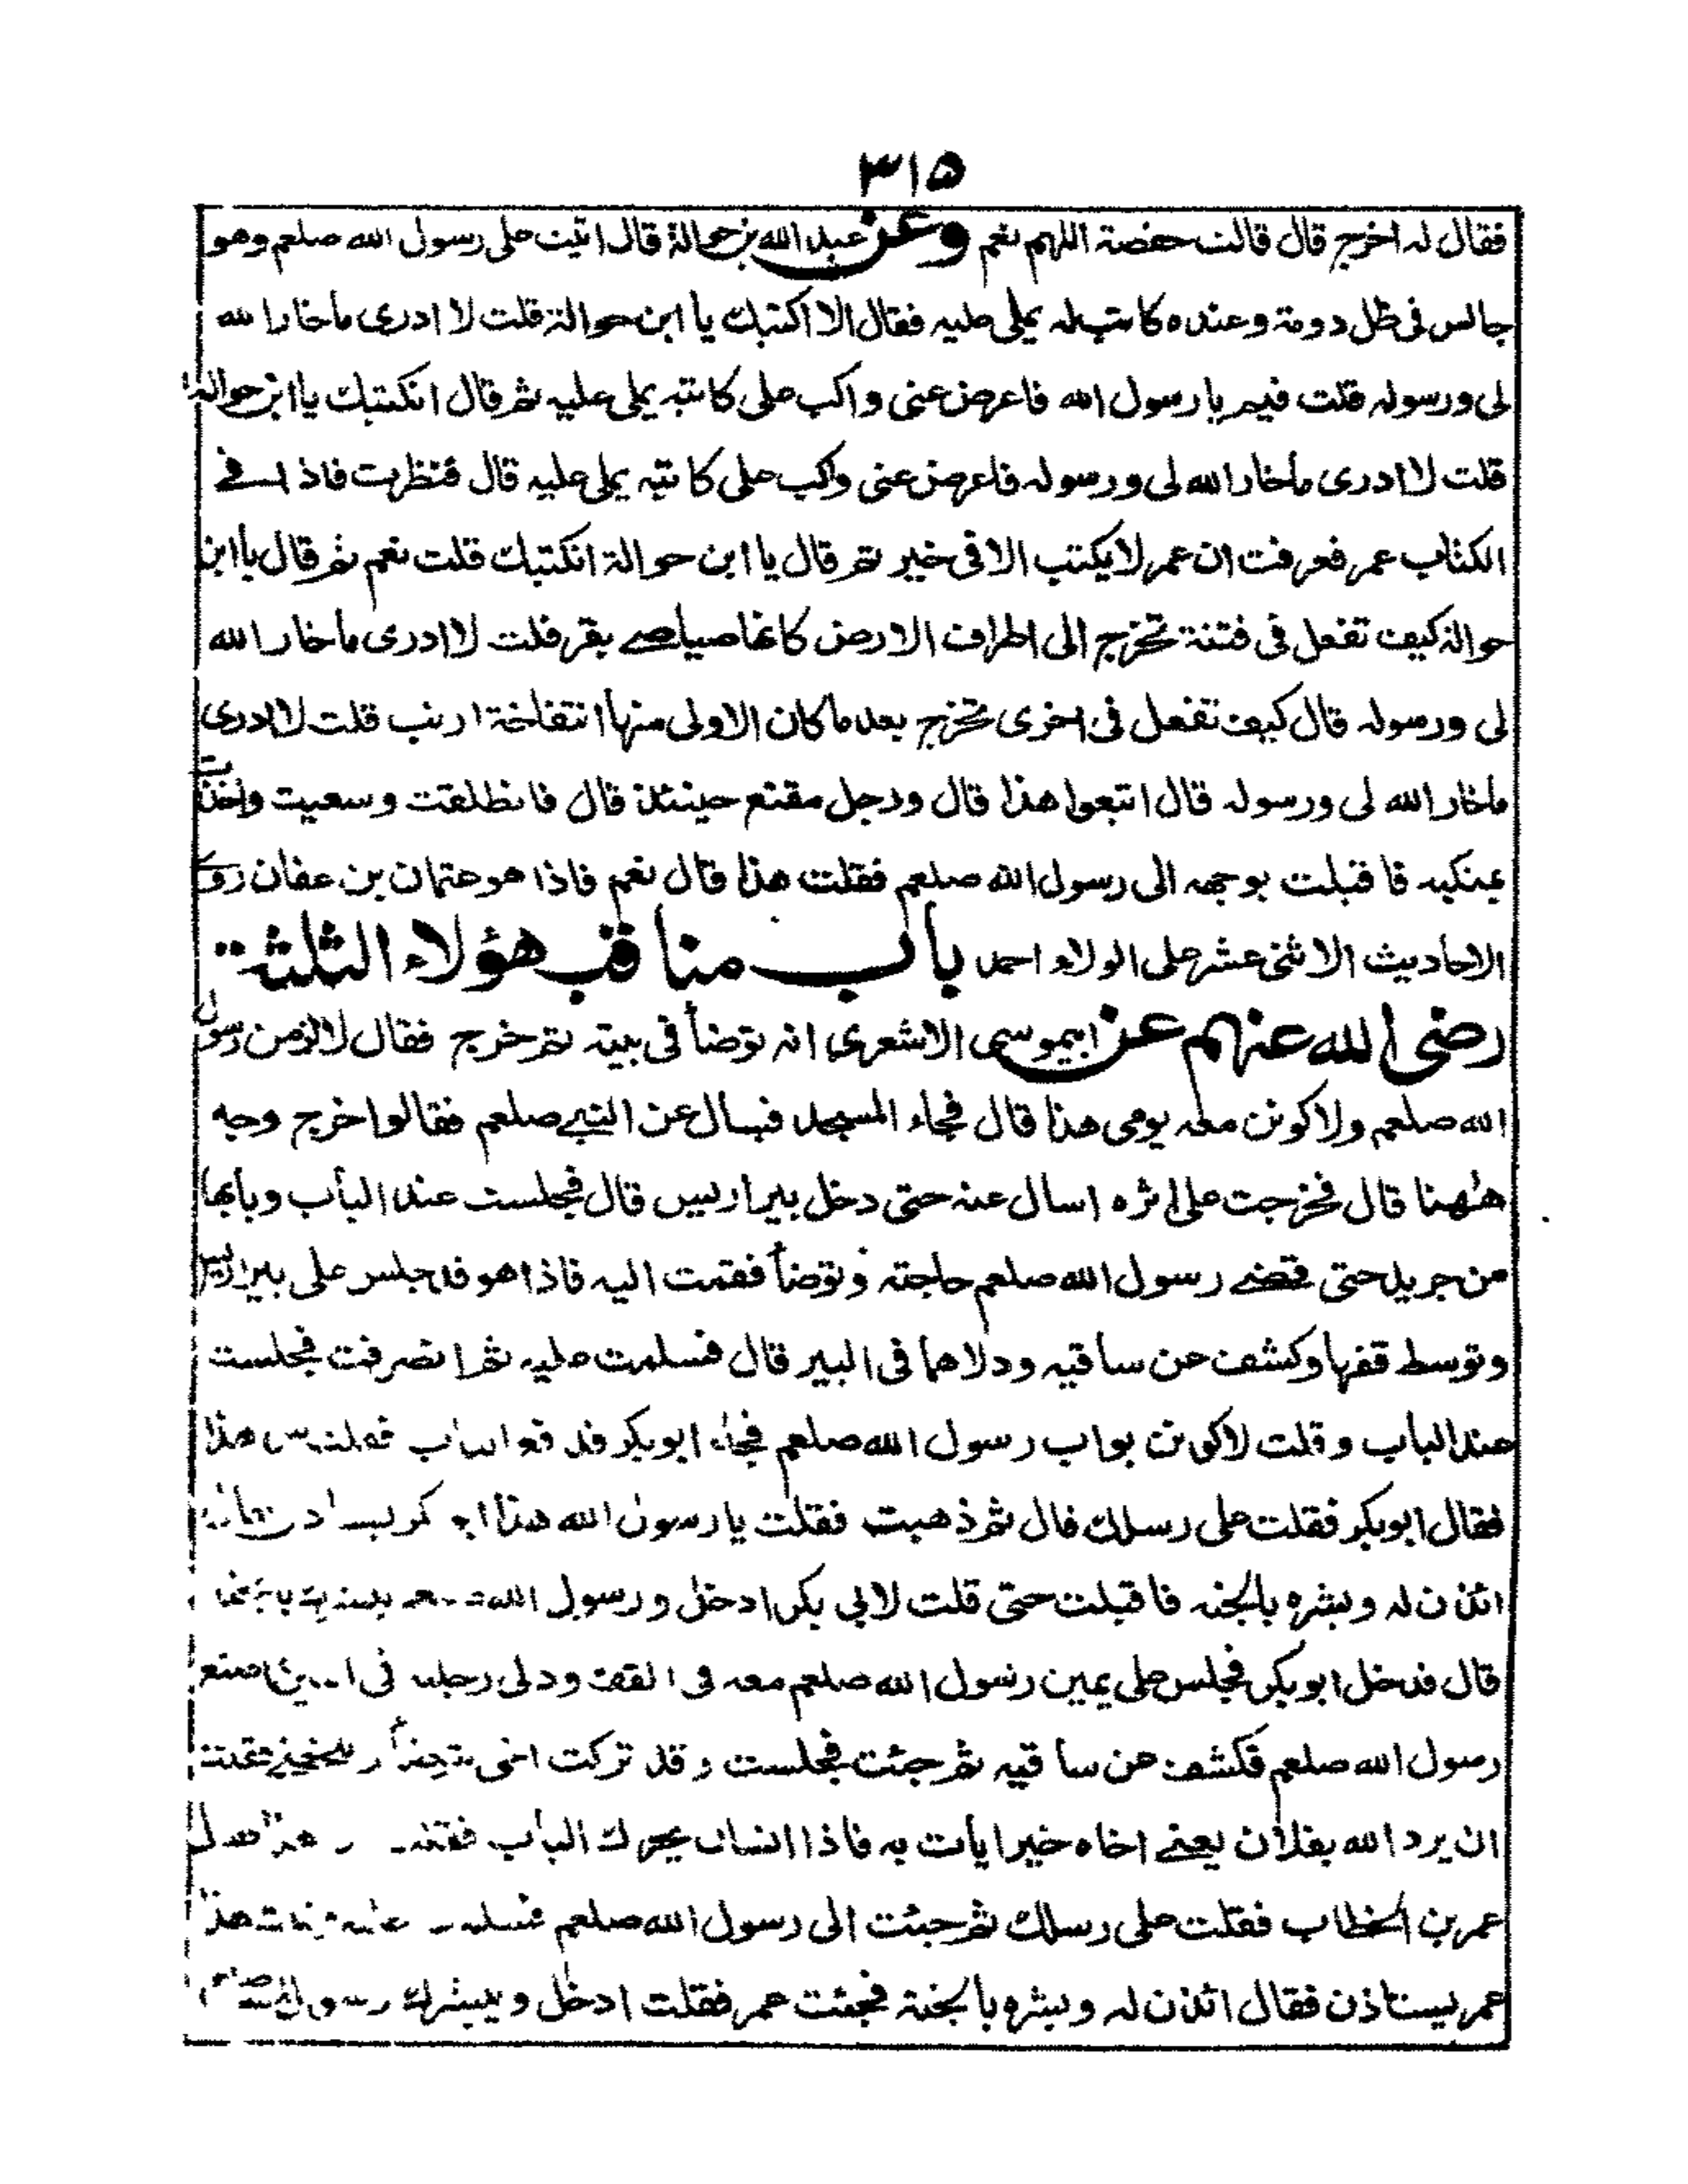 ٣١۵
فقال له اخرج قال قالت حفصة اللهم نعم وعن عبد الله بن حوالة قال اتيت على رسول الله صلعم وهو
جالس فى ظل دومة وعنده كاتب له يملى عليه فقال الا اكتبك يا ابن حوالة قلت لا ادرى ماخار الله
لى ورسوله قلت فيم يا رسول الله فاعرض عنى واكب على كاتبه يملى عليه ثم قال انكتبك يا ابن حوالة
قلت لا ادرى ماخار الله لى ورسوله فاعرض عنى واكب على كاتبه يملى عليه قال فنظرت فاذا فے
الكتاب عمر فعرفت ان عمر لا يكتب الا فى خير ثم قال يا ابن حوالة انكتبك قلت نعم ثم قال يا ابن
حوالة كيف تفعل فى فتنة تخرج الى اطراف الارض كانها صياصے بقر قلت لا ادرى ماخار الله
لى ورسوله قال كيف تفعل فى اخرى تخرج بعدها كان الاولى منها انتفاخة ارنب قلت لا ادرى
ماخار الله لى ورسوله قال اتبعوا هذا قال ورجل مقنع حينئذ قال فانطلقت وسعيت واخذت
بمنكبه فاقبلت بوجهه الى رسول الله صلعم فقلت هذا قال نعم فاذا هو عثمان بن عفان روے
الاحاديث الاثنى عشر على الولاء احمد باب مناقب هؤلاء الثلثة
رضى الله عنهم عن ابيموسى الاشعرى انه توضأ فى بيته ثم خرج فقال لالزمن رسول
الله صلعم ولاكونن معه يومى هذا قال فجاء المسجد فسال عن النبے صلعم فقالوا خرج وجه
هٰهنا قال فخرجت على اثره اسال عنه حتى دخل بير اريس قال فجلست عند الباب وبابها
من جريد حتى قضے رسول الله صلعم حاجته وتوضأ فقمت اليه فاذا هو قد جلس على بير اريس
وتوسط قفها وكشف عن ساقيه ودلاهما فى البير قال فسلمت عليه ثم انصرفت فجلست
عند الباب وقلت لاكونن بواب رسول الله صلعم فجاء ابوبكر فدفع الباب فقلت من هذا
فقال ابوبكر فقلت على رسلك قال ثم ذهبت فقلت يا رسول الله هذا ابو بكر يستاذن فقال
ائذن له وبشره بالجنة فاقبلت حتى قلت لابي بكر ادخل ورسول الله صلعم يبشرك بالجنة
قال فدخل ابوبكر فجلس على يمين رسول الله صلعم معه فى القف ودلى رجليه فى البير كما صنع
رسول الله صلعم فكشف عن ساقيه ثم جئت فجلست وقد تركت اخى يتوضأ ويلحقنے فقلت
ان يرد الله بفلان يعنے اخاه خيرا يات به فاذا انسان يحرك الباب فقلت من هذا قال
عمر بن الخطاب فقلت على رسلك ثم جئت الى رسول الله صلعم فسلمت عليه فقلت هذا
عمر يستاذن فقال ائذن له وبشره بالجنة فجئت عمر فقلت ادخل ويبشرك رسول الله صلعم